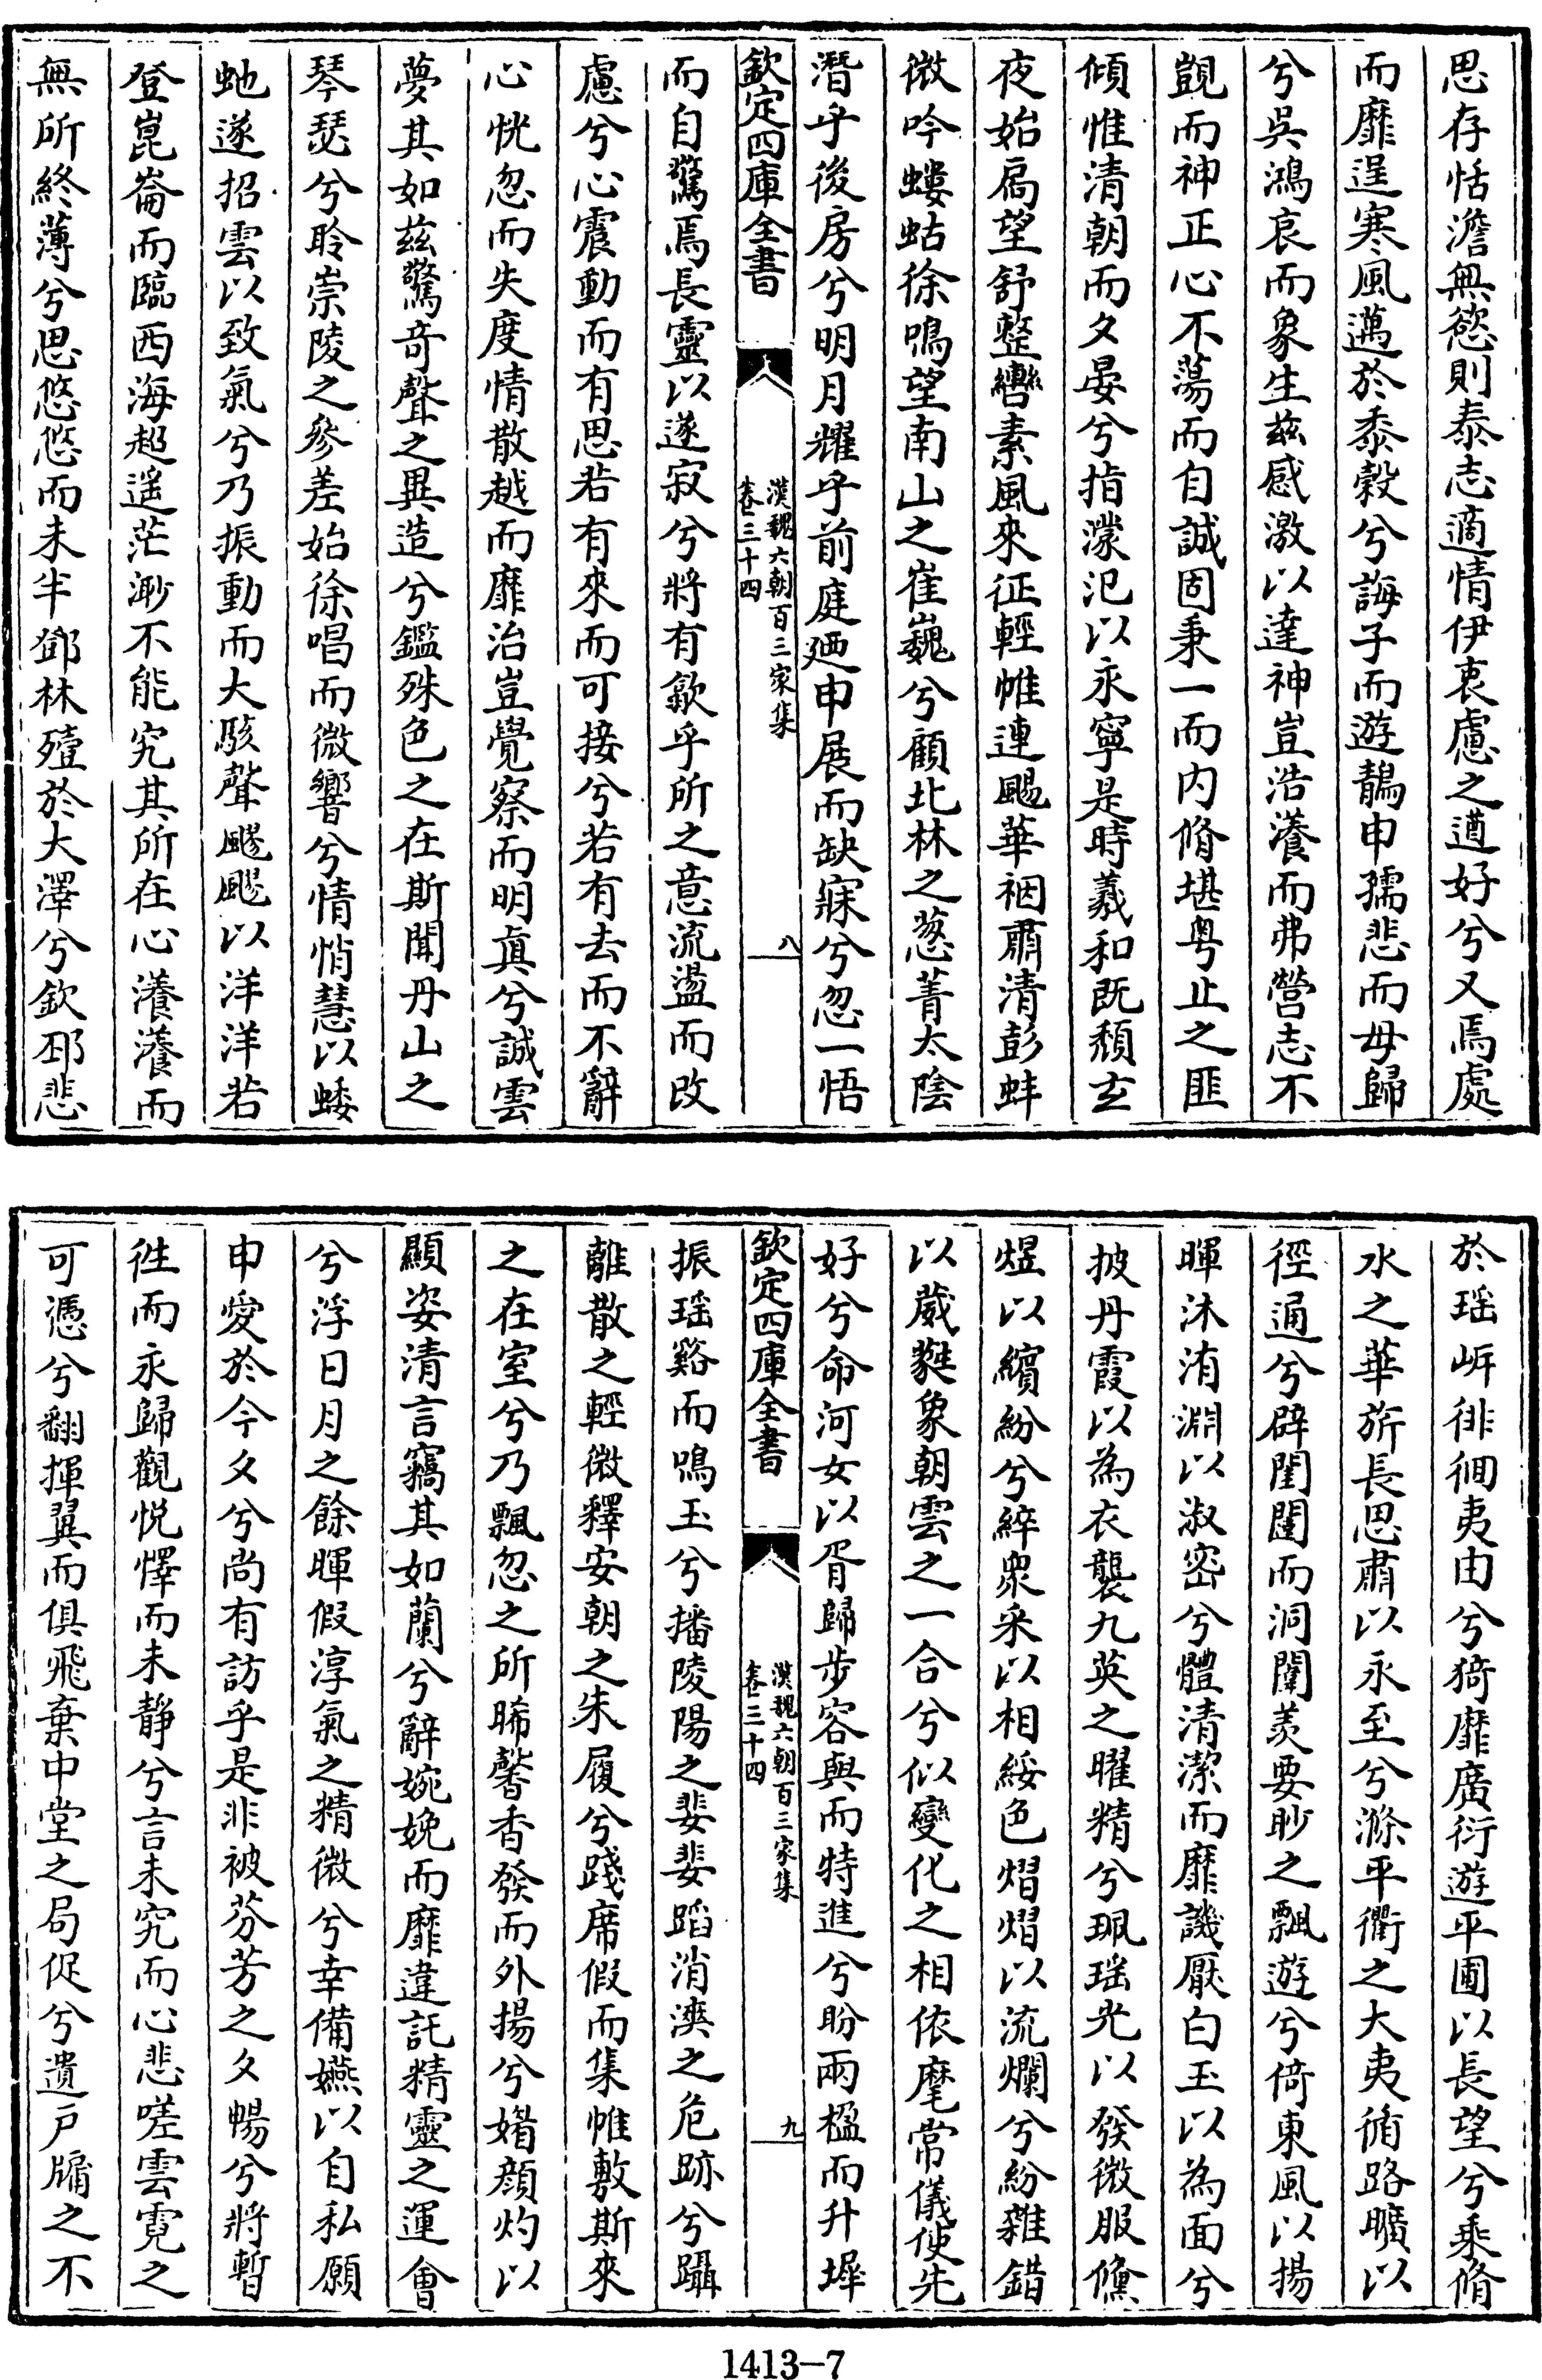 思存恬澹無慾則泰志適情伊衷慮之遒好兮又焉處
而靡逞寒風邁於黍榖兮誨子而遊鶄申孺悲而毋歸
兮吳鴻哀而象生兹感激以達神豈浩瀁而弗營志不
覬而神正心不蕩而自誠固秉一而内脩堪粤止之匪
傾惟清朝而夕晏兮指濛汜以永寧是時羲和既頽玄
夜始扃望舒整轡素風來征輕帷連颺華裀肅清彭蚌
微吟螻蛄徐鳴望南山之崔巍兮顧北林之葱菁太陰
潛乎後房兮明月耀乎前庭廼申展而缺寐兮忽一悟
欽定四庫全書
漢魏六朝百三家集
卷三十四
八
而自驚焉長靈以遂寂兮將有歙乎所之意流盪而改
慮兮心震動而有思若有來而可接兮若有去而不辭
心恍忽而失度情散越而靡治豈覺察而明真兮誠雲
夢其如兹驚奇聲之異造兮鑑殊色之在斯聞丹山之
琴瑟兮聆崇陵之參差始徐唱而微響兮情悄慧以蜲
虵遂招雲以致氣兮乃振動而大駭聲飂飂以洋洋若
登崑崙而臨西海超遥茫渺不能究其所在心瀁瀁而
無所終薄兮思悠悠而未半鄧林殪於大澤兮欽邳悲
於瑶岓徘徊夷由兮猗靡廣衍遊平圃以長望兮乘脩
水之華旂長思肅以永至兮滌平衢之大夷循路曠以
徑通兮辟閨闥而洞闈羡要眇之飄遊兮倚東風以揚
暉沐洧淵以淑密兮體清潔而靡譏厭白玉以為面兮
披丹霞以為衣襲九英之曜精兮珮瑶光以發微服儵
煜以繽紛兮綷衆采以相綏色熠熠以流爛兮紛雜錯
以葳蕤象朝雲之一合兮似變化之相依麾常儀使先
好兮命河女以胥歸步容與而特進兮盼兩楹而升墀
欽定四庫全書
漢魏六朝百三家集
卷三十四
九
振瑶谿而鳴玉兮播陵陽之斐斐蹈消漺之危跡兮躡
離散之輕微釋安朝之朱履兮踐席假而集帷敷斯來
之在室兮乃飄忽之所晞馨香發而外揚兮媚顔灼以
顯姿清言竊其如蘭兮辭婉娩而靡違託精靈之運會
兮浮日月之餘暉假淳氣之精微兮幸備嬿以自私願
申愛於今夕兮尚有訪乎是非被芬芳之夕暢兮將暫
徃而永歸觀悦懌而未静兮言未究而心悲嗟雲霓之
可憑兮翻揮翼而俱飛棄中堂之局促兮遺户牖之不
1413-7